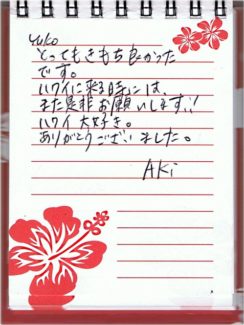 Yuko
とってもきもち良かった
です。
ハワイに来る時には、
また是非お願いします!!
ハワイ大好き。
ありがとうございました。
Aki